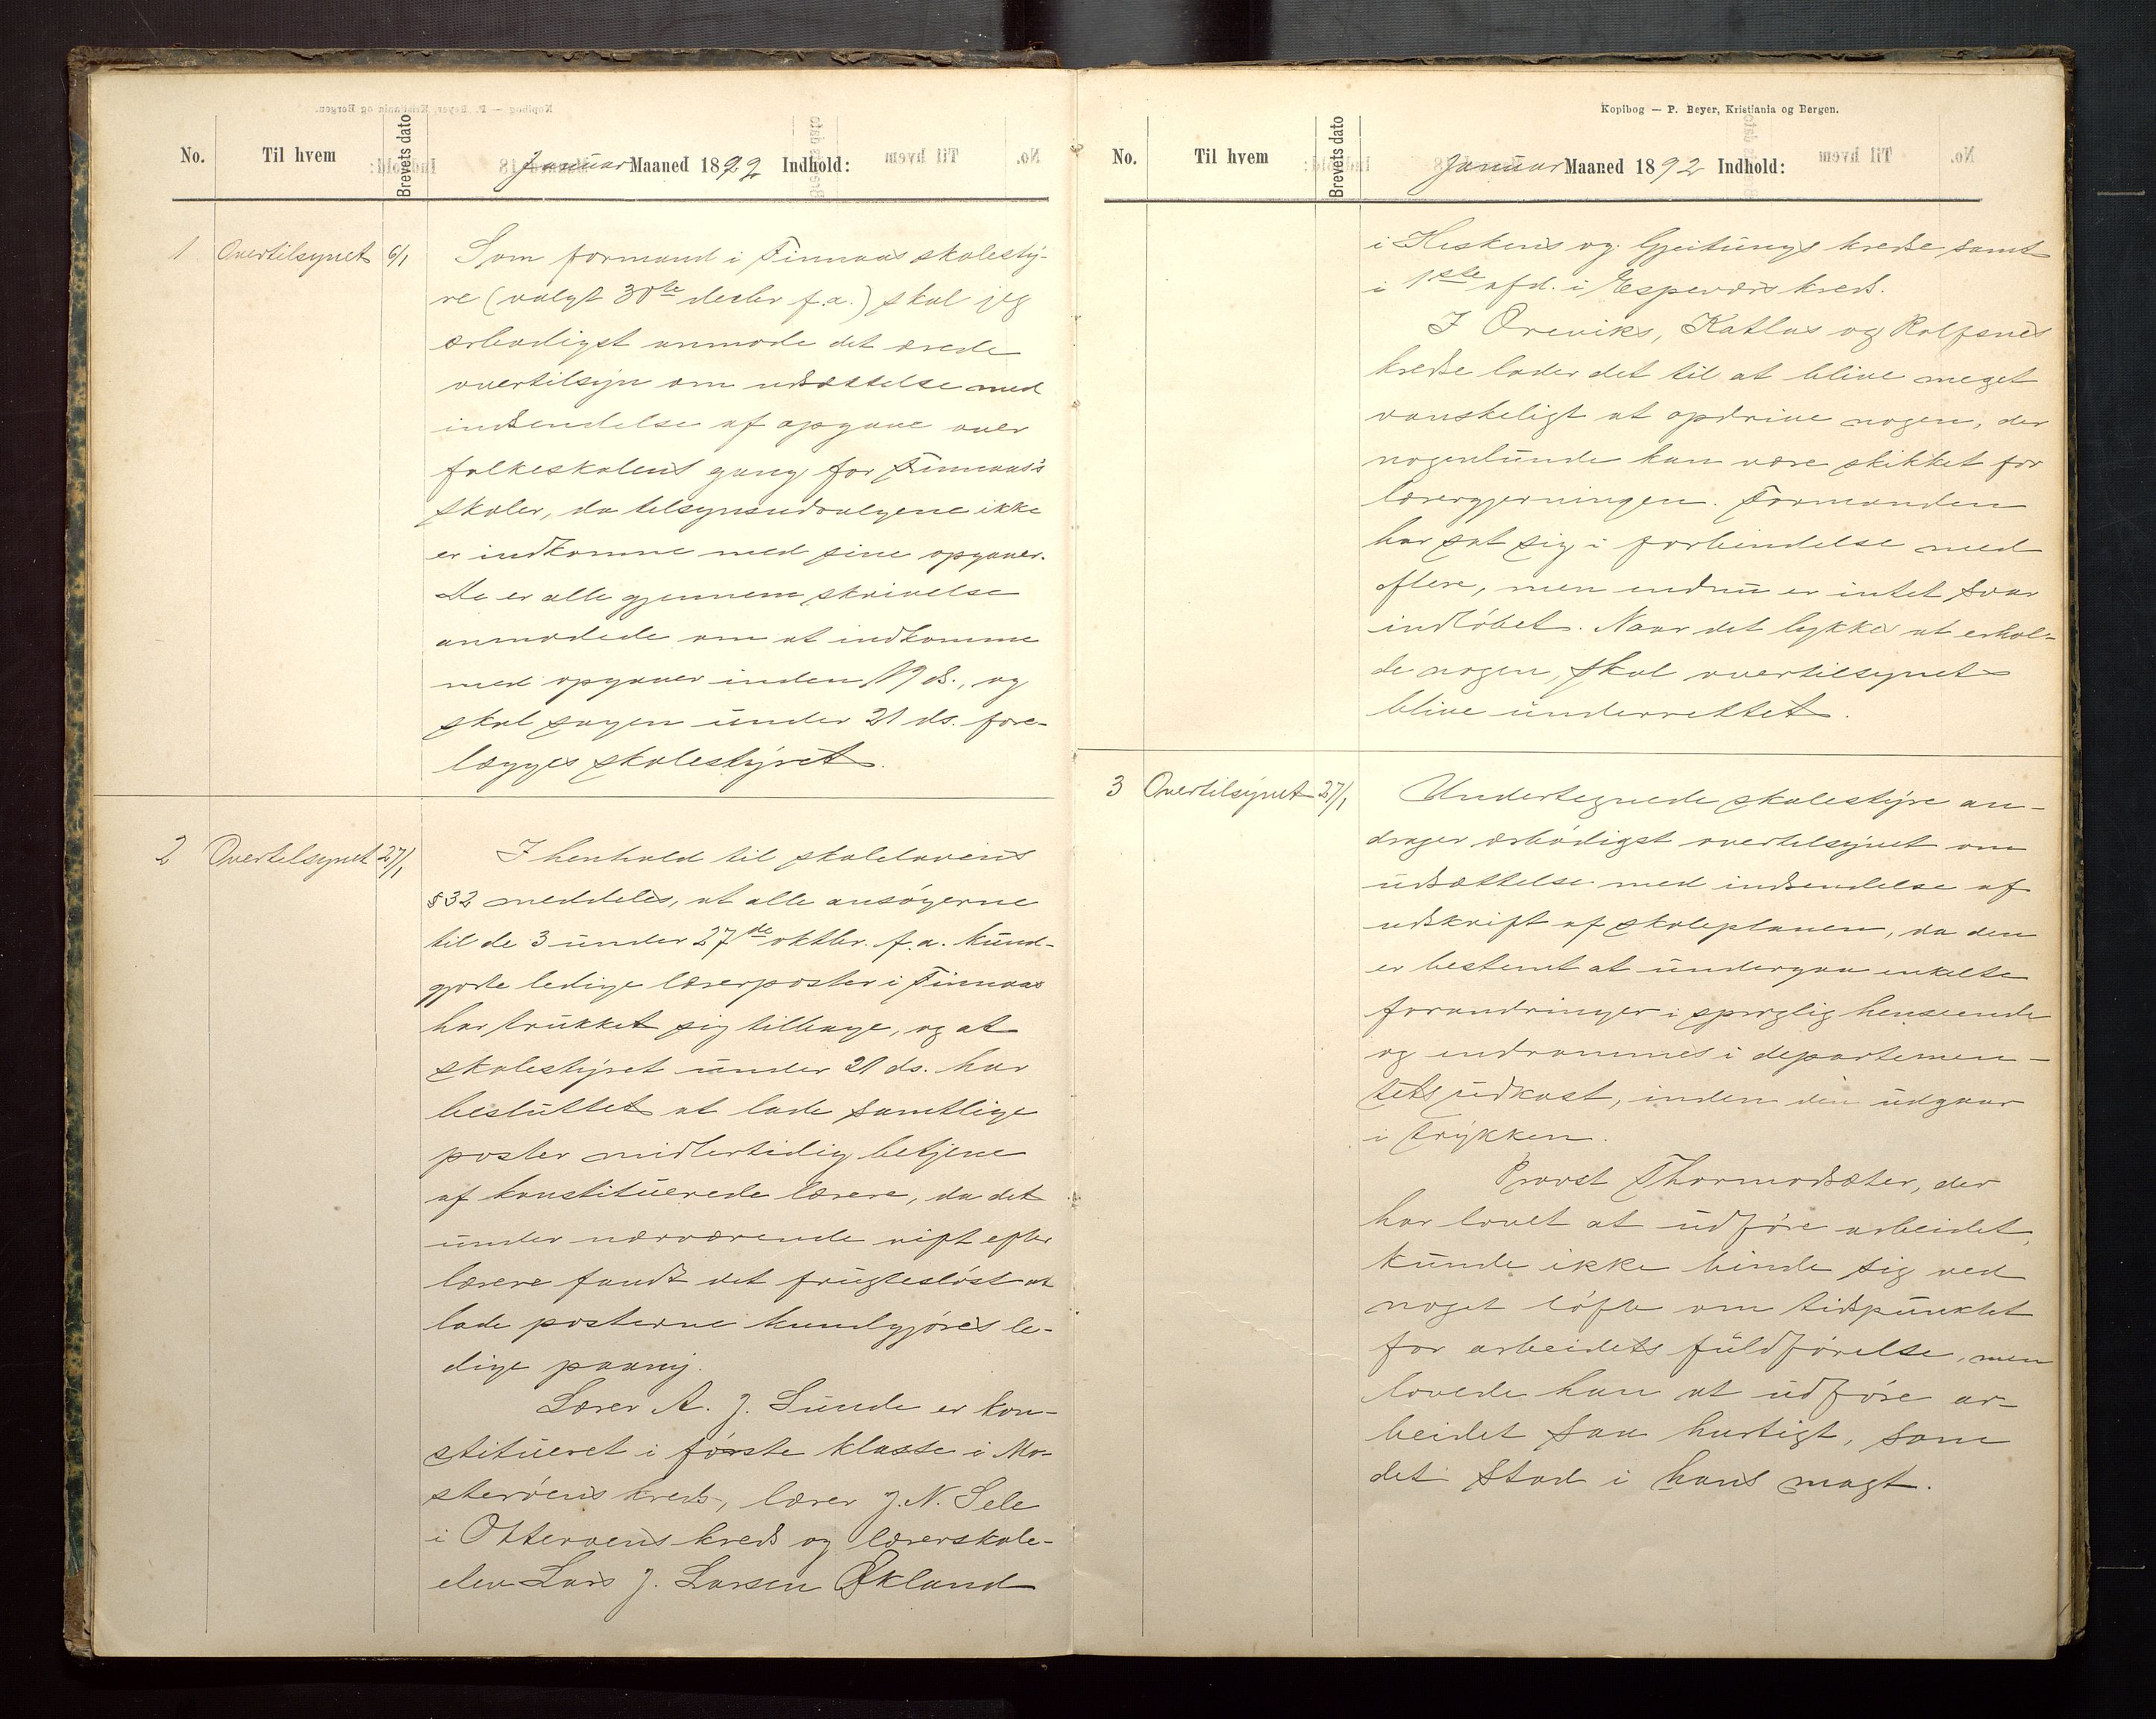 No. Til hvem Brevets dato Januar Maaned 1892 Indhold:
1 Overtilsynet 6/1 Som formand i Finnaas skolesty-
re (valgt 30te decbr f.a.) skal jeg
ærbødigst anmode det ærede
overtilsyn om udsættelse med
indsendelse af opgave over
folkeskolens gang for Finnaas's
skoler, da tilsynsudvalgene ikke
er indkomne med sine opgaver.
De er alle gjennem skrivelse
anmodede om at indkomme
med opgaver inden 19 ds., og
skal sagen under 21 ds. fore-
lægges skolestyret.
2 Overtilsynet 27/1 I henhold til skolelovens
§ 32 meddeles, at alle ansøgerne
til de 3 under 27de oktbr. f.a. kund-
gjorte ledige lærerposter i Finnaas
har trukket sig tilbage, og at
skolestyret under 21 ds. har
besluttet at lade samtlige
poster midlertidig betjene
af konstituerede lærere, da det
under nærværende rift efter
lærere fandt det frugtesløst at
lade posterne kundgjøres le-
dige paany.
Lærer A. J. Sunde er kon-
stitueret i første klasse i Mo-
sterøens kreds, lærer J. N. Sele
i Otterøens kreds og lærerskole-
elev Lars J. Larsen Økland
Kopibog — P. Beyer, Kristiania og Bergen.
No. Til hvem Brevets dato Januar Maaned 1892 Indhold:
i Heskens og Gjeitungs kredse samt
i 1ste afd. i Espeværs kreds.
I Øreviks, Katlas og Rolfsnes
kredse lader det til at blive meget
vanskeligt at opdrive nogen, der
nogenlunde kan være skikket for
lærergjerningen. Formanden
har sat sig i forbindelse med
flere, men endnu er intet svar
indløbet. Naar det lykkes at erhol-
de nogen, skal overtilsynet
blive underrettet.
3 Overtilsynet 27/1 Undertegnede skolestyre an-
drager ærbødigst overtilsynet om
udsættelse med indsendelse af
udskrift af skoleplanen, da den
er bestemt at undergaa enkelte
forandringer i sproglig henseende
og indrammes i departemen-
tets udkast, inden den udgaar
i trykken.
Provst Thormodsæter, der
har lovet at udføre arbeidet,
kunde ikke binde sig ved
noget løfte om tidspunktet
for arbeidets fuldførelse, men
lovede han at udføre ar-
beidet saa hurtigt, som
det stod i hans magt.